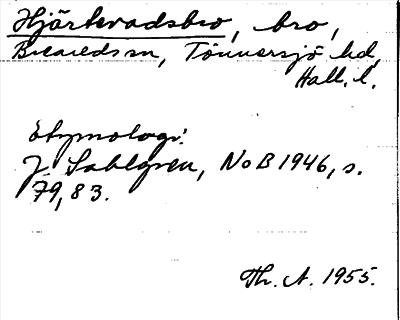 Hjärtvadsbro, bro,
Breareds sn, Tönnersjö hd,
Hall. l.
Etymologi:
J. Sahlgren, NoB 1946, s.
79, 83.
Th. A. 1955.